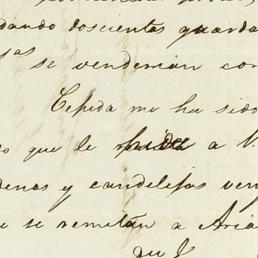 dando doscientas guarda
se venderian con
Cepeda me ha sido
o que le pide a V.
denas y candelejas ven
e se remitan a Aria